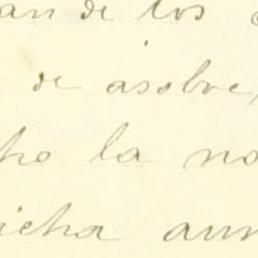 an de los
de asolve
ho la no
icha aun